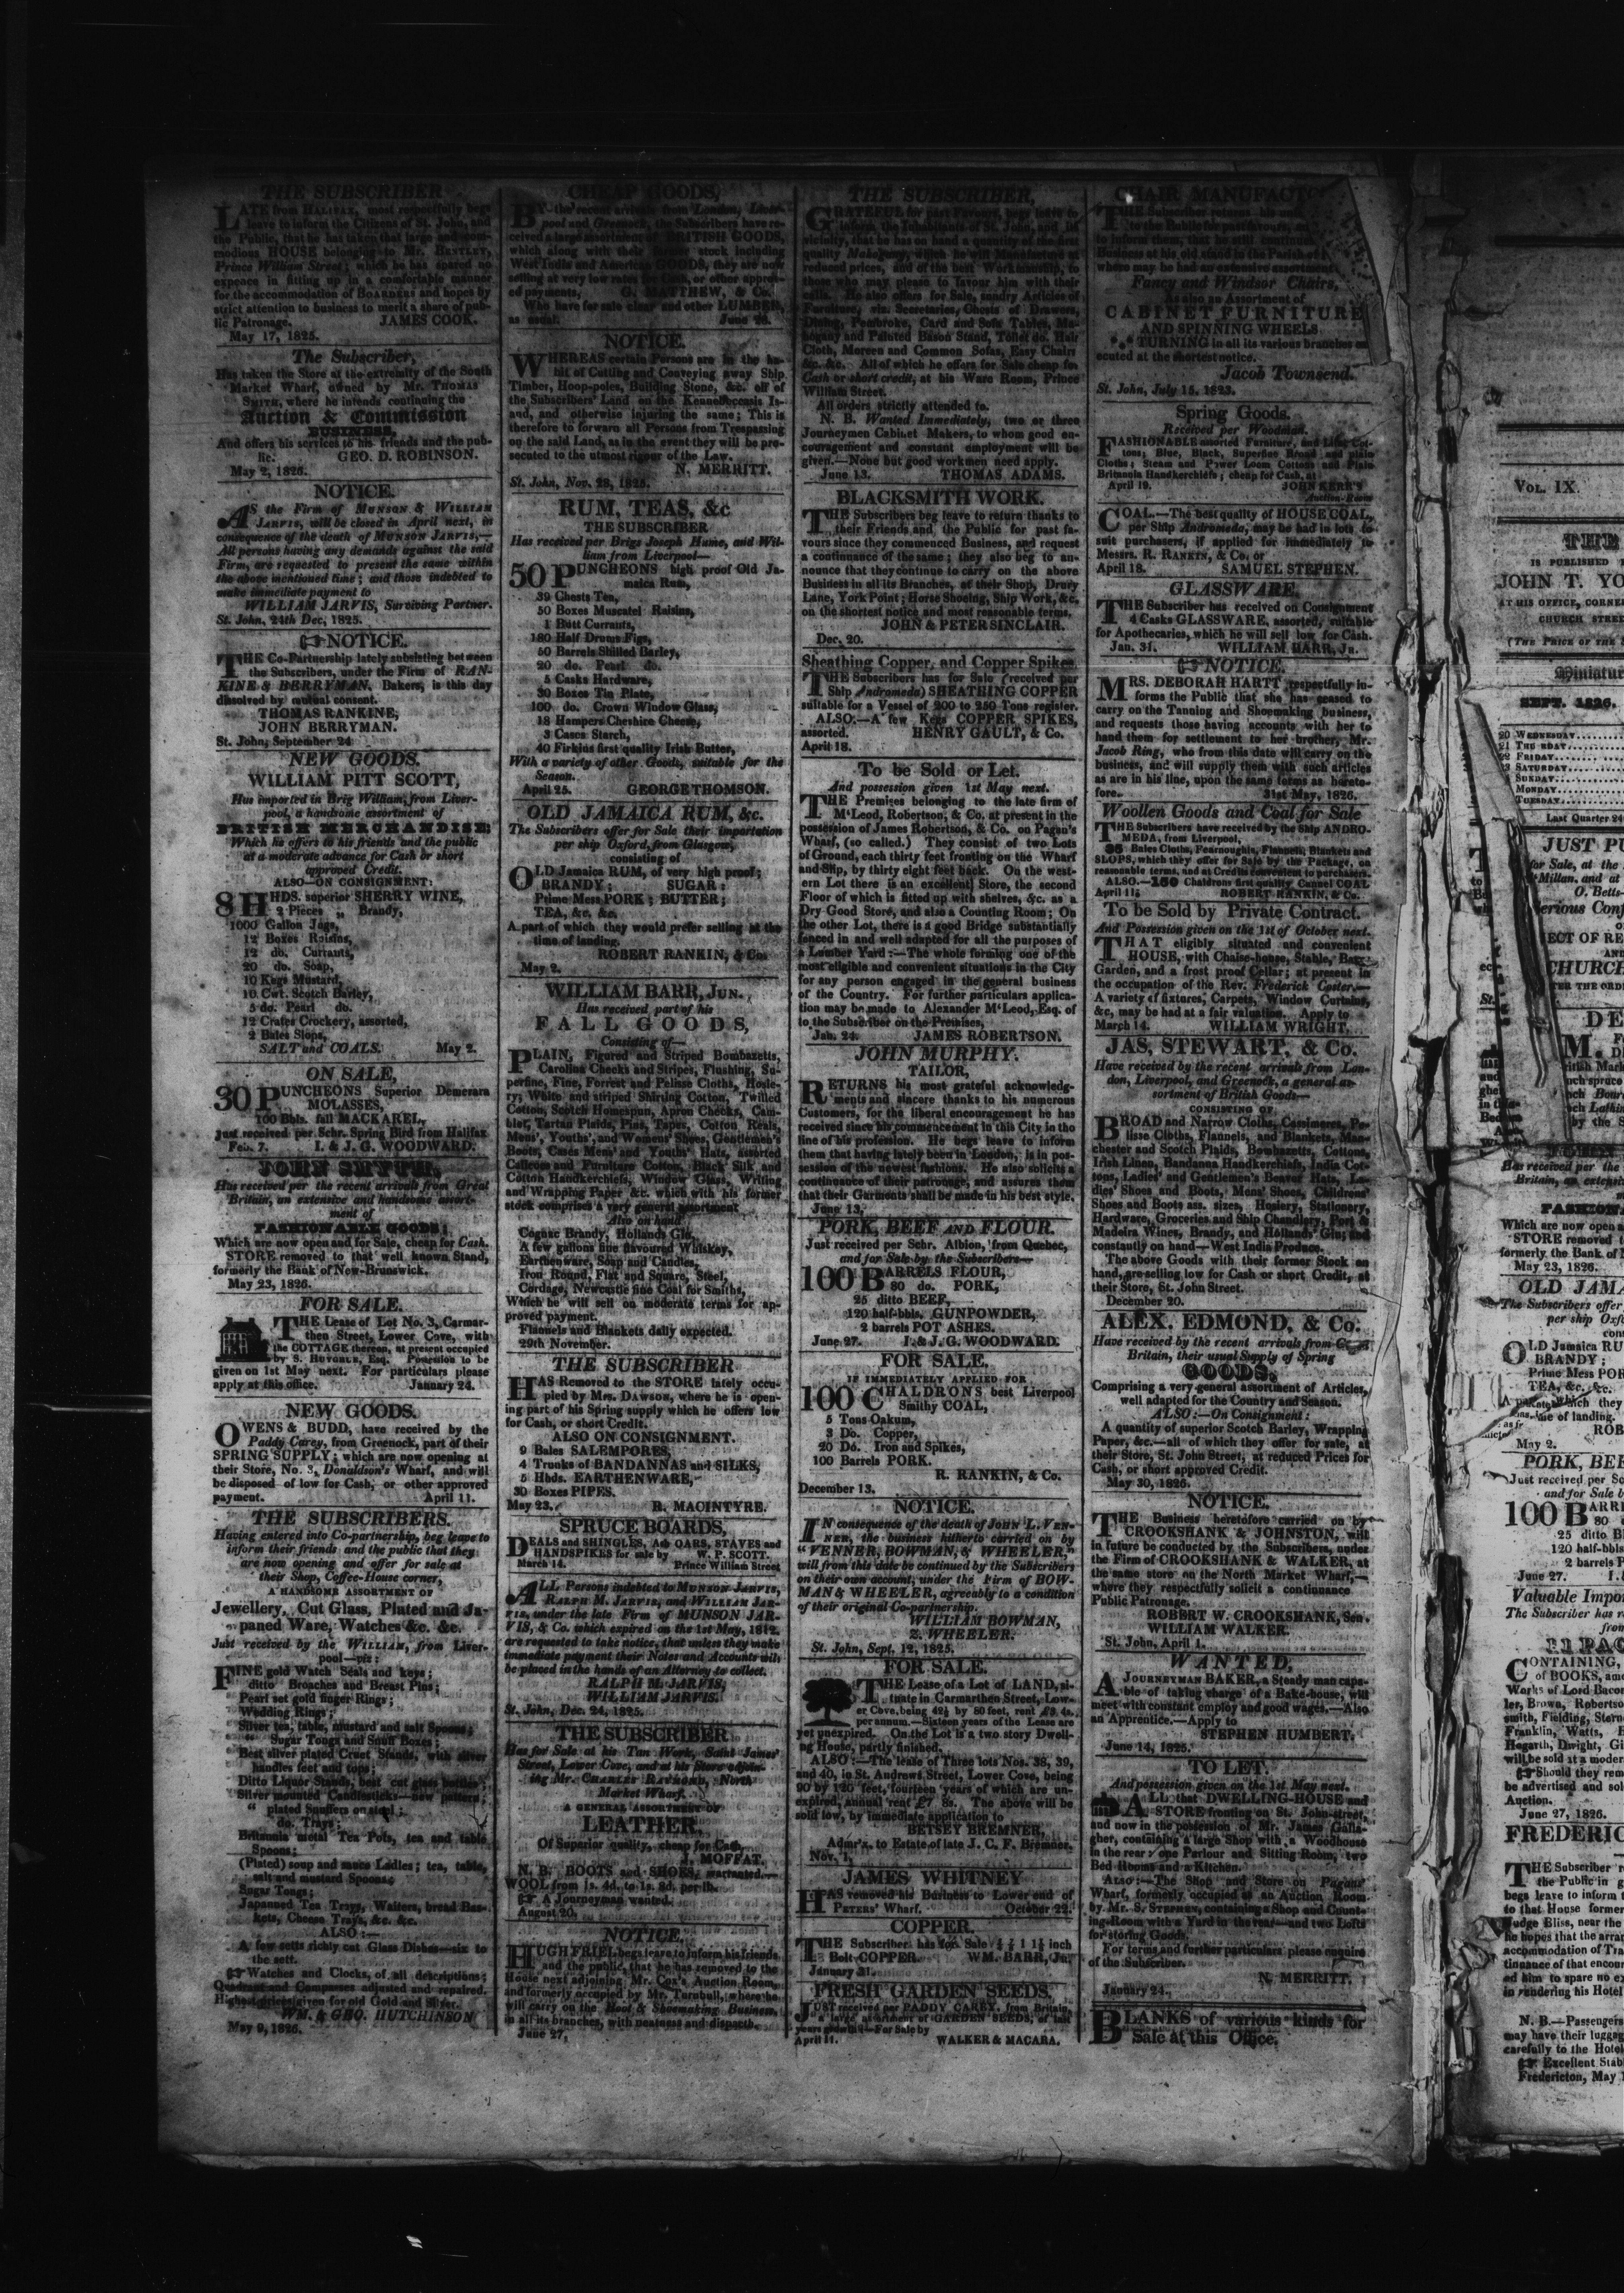 THE SUBSCRIBER
LATE from HALIFAX, most respectfully begs
leave to inform the Citizens of St. John, and
the Public, that he has taken that large and com-
modious HOUSE belonging to Mr. BENTLEY,
Prince William Street; which he has spared no
expence in fitting up in a comfortable manner
for the accommodation of BOARDERS and hopes by
strict attention to business to merit a share of pub-
lic Patronage. JAMES COOK.
May 17, 1825.
The Subscriber,
Has taken the Store at the extremity of the South
Market Wharf, owned by Mr. THOMAS
SMITH, where he intends continuing the
Auction & Commission
BUSINESS,
And offers his services to his friends and the pub-
lic. GEO. D. ROBINSON.
May 2, 1826.
NOTICE.
AS the Firm of MUNSON & WILLIAM
JARVIS, will be closed in April next, in
consequence of the death of MUNSON JARVIS,—
All persons having any demands against the said
Firm, are requested to present the same within
the above mentioned time; and those indebted to
make immediate payment to
WILLIAM JARVIS, Surviving Partner.
St. John, 24th Dec, 1825.
☞NOTICE.
THE Co-Partnership lately subsisting between
the Subscribers, under the Firm of RAN-
KINE & BERRYMAN, Bakers, is this day
dissolved by mutual consent.
THOMAS RANKINE,
JOHN BERRYMAN.
St. John, September 24
NEW GOODS.
WILLIAM PITT SCOTT,
Has imported in Brig William, from Liver-
pool, a handsome assortment of
BRITISH MERCHANDISE:
Which he offers to his friends and the public
at a moderate advance for Cash or short
approved Credit.
ALSO—ON CONSIGNMENT:
8 HHDS. superior SHERRY WINE,
2 Pieces „ Brandy,
1000 Gallon Jugs,
12 Boxes Raisins,
12 do. Currants,
20 do. Soap,
10 Kegs Mustard,
10 Cwt. Scotch Barley,
5 do. Pearl do.
12 Crates Crockery, assorted,
2 Bales Slops,
SALT and COALS. May 2.
ON SALE,
30 PUNCHEONS Superior Demerara
MOLASSES,
100 Bbls. fall MACKAREL,
Just received per Schr. Spring Bird from Halifax
Feb. 7. I. & J. G. WOODWARD.
JOHN SMYTH,
Has received per the recent arrivals from Great
Britain, an extensive and handsome assort-
ment of
FASHIONABLE GOODS;
Which are now open and for Sale, cheap for Cash.
STORE removed to that well known Stand,
formerly the Bank of New-Brunswick.
May 23, 1826.
FOR SALE.
THE Lease of Lot No. 3, Carmar-
then Street, Lower Cove, with
the COTTAGE thereon, at present occupied
by S. HUYGHUE, Esq. Possession to be
given on 1st May next. For particulars please
apply at this office. January 24.
NEW GOODS.
OWENS & BUDD, have received by the
Paddy Carey, from Greenock, part of their
SPRING SUPPLY; which are now opening at
their Store, No. 3, Donaldson's Wharf, and will
be disposed of low for Cash, or other approved
payment. April 11.
THE SUBSCRIBERS.
Having entered into Co-partnership, beg leave to
inform their friends and the public that they
are now opening and offer for sale at
their Shop, Coffee-House corner,
A HANDSOME ASSORTMENT OF
Jewellery, Cut Glass, Plated and Ja-
paned Ware, Watches &c. &c.
Just received by the WILLIAM, from Liver-
pool—viz:
FINE gold Watch Seals and keys;
ditto Broaches and Breast Pins;
Pearl set gold finger Rings;
Wedding Rings;
Silver tea, table, mustard and salt Spoons;
" Sugar Tongs and Snuff Boxes;
Best silver plated Cruet Stands, with silver
handles feet and tops;
Ditto Liquor Stands, best cut glass bottles;
Silver mounted Candlesticks—new pattern;
" plated Snuffers on steel;
do. Trays;
Britannia metal Tea Pots, tea and table
Spoons;
(Plated) soup and sauce Ladles; tea, table,
salt and mustard Spoons;
Sugar Tongs;
Japanned Tea Trays, Waiters, bread Bas-
kets, Cheese Trays, &c. &c.
ALSO:—
A few setts richly cut Glass Dishes—six to
the sett.
☞Watches and Clocks, of all descriptions;
Quadrant and Compasses adjusted and repaired.
Highest prices given for old Gold and Silver.
WM. & GEO. HUTCHINSON
May 9, 1826.
CHEAP GOODS,
BY the recent arrivals from London, Liver-
pool and Greenock, the Subscribers have re-
ceived a large assortment of BRITISH GOODS,
which along with their former stock including
West India and American GOODS, they are now
selling at very low rates for Cash, or other approv-
ed payments. G. MATTHEW, & Co.
Who have for sale clear and other LUMBER,
as usual. June 28.
NOTICE.
WHEREAS certain Persons are in the ha-
bit of Cutting and Conveying away Ship
Timber, Hoop-poles, Building Stone, &c. off of
the Subscribers' Land on the Kennebeccasis Is-
and, and otherwise injuring the same; This is
therefore to forwarn all Persons from Trespassing
on the said Land, as in the event they will be pro-
secuted to the utmost rigour of the Law.
N. MERRITT.
St. John, Nov. 28, 1825.
RUM, TEAS, &c
THE SUBSCRIBER
Has received per Brigs Joseph Hume, and Wil-
liam from Liverpool—
50 PUNCHEONS high proof Old Ja-
maica Rum,
39 Chests Tea,
50 Boxes Muscatel Raisins,
1 Butt Currants,
180 Half Drums Figs,
50 Barrels Shilled Barley,
20 do. Pearl do.
5 Casks Hardware,
30 Boxes Tin Plate,
100 do. Crown Window Glass,
18 Hampers Cheshire Cheese,
3 Cases Starch,
40 Firkins first quality Irish Butter,
With a variety of other Goods, suitable for the
Season.
April 25. GEORGE THOMSON.
OLD JAMAICA RUM, &c.
The Subscribers offer for Sale their importation
per ship Oxford, from Glasgow,
consisting of
OLD Jamaica RUM, of very high proof;
BRANDY; SUGAR;
Prime Mess PORK; BUTTER;
TEA, &c. &c.
A part of which they would prefer selling at the
time of landing.
ROBERT RANKIN, & Co.
May 2.
WILLIAM BARR, JUN.
Has received part of his
FALL GOODS,
Consisting of—
PLAIN, Figured and Striped Bombazetts,
Carolina Checks and Stripes, Flushing, Su-
perfine, Fine, Forrest and Pelisse Cloths, Hosie-
ry; White and striped Shirting Cotton, Twilled
Cotton, Scotch Homespun, Apron Checks, Cam-
blet, Tartan Plaids, Pins, Tapes, Cotton Reels,
Mens', Youths', and Womens' Shoes, Gentlemen's
Boots, Cases Mens' and Youths' Hats, assorted
Callicoes and Furniture Cotton, Black Silk and
Cotton Handkerchiefs, Window Glass, Writing
and Wrapping Paper &c. which with his former
stock comprises a very general assortment
Also on hand
Cognac Brandy, Hollands Gin,
A few gallons fine flavoured Whiskey,
Earthenware, Soap and Candles,
Iron Round, Flat and Square, Steel,
Cordage, Newcastle fine Coal for Smiths,
Which he will sell on moderate terms for ap-
proved payment.
Flannels and Blankets daily expected.
29th November.
THE SUBSCRIBER
HAS Removed to the STORE lately occu-
pied by Mrs. DAWSON, where he is open-
ing part of his Spring supply which he offers low
for Cash, or short Credit.
ALSO ON CONSIGNMENT.
9 Bales SALEMPORES,
4 Trunks of BANDANNAS and SILKS,
5 Hhds. EARTHENWARE,
30 Boxes PIPES.
May 23. B. MACINTYRE.
SPRUCE BOARDS,
DEALS and SHINGLES, Ash OARS, STAVES and
HANDSPIKES for sale by W. P. SCOTT.
March 14. Prince William Street
ALL Persons indebted to MUNSON JARVIS,
RALPH M. JARVIS, and WILLIAM JAR-
VIS, under the late Firm of MUNSON JAR-
VIS, & Co. which expired on the 1st May, 1812,
are requested to take notice, that unless they make
immediate payment their Notes and Accounts will
be placed in the hands of an Attorney to collect.
RALPH M. JARVIS,
WILLIAM JARVIS.
St. John, Dec. 24, 1825.
THE SUBSCRIBER
Has for Sale at his Tan Work, Saint James'
Street, Lower Cove, and at his Store adjoin-
ing Mr. CHARLES RAYMOND, North
Market Wharf.
A GENERAL ASSORTMENT OF
LEATHER,
Of Superior quality, cheap for Cash.
J. MOFFAT.
N. B. BOOTS and SHOES, warranted.—
WOOL from 1s. 4d. to 1s. 8d. per lb.
☞ A Journeyman wanted.
August 20.
NOTICE.
HUGH FRIEL begs leave to inform his friends
and the public, that he has removed to the
House next adjoining Mr. Cox's Auction Room,
and formerly occupied by Mr. Turnbull, where he
will carry on the Boot & Shoemaking Business,
in all its branches, with neatness and dispatch.
June 27,
THE SUBSCRIBER,
GRATEFUL for past Favours, begs leave to
inform the Inhabitants of St. John, and its
vicinity, that he has on hand a quantity of the first
quality Mahogany, which he will Manufacture at
reduced prices, and of the best Workmanship, to
those who may please to favour him with their
calls. He also offers for Sale, sundry Articles of
Furniture, viz. Secretaries, Chests of Drawers,
Dining, Pembroke, Card and Sofa Tables, Ma-
hogany and Painted Bason Stand, Toilet do. Hair
Cloth, Moreen and Common Sofas, Easy Chairs
&c. &c. All of which he offers for Sale cheap for
Cash or short credit, at his Ware Room, Prince
William Street.
All orders strictly attended to.
N. B. Wanted Immediately, two or three
Journeymen Cabinet Makers, to whom good en-
couragement and constant employment will be
given.—None but good workmen need apply.
June 13. THOMAS ADAMS.
BLACKSMITH WORK.
THE Subscribers beg leave to return thanks to
their Friends and the Public for past fa-
vours since they commenced Business, and request
a continuance of the same; they also beg to an-
nounce that they continue to carry on the above
Business in all its Branches, at their Shop, Drury
Lane, York Point; Horse Shoeing, Ship Work, &c.
on the shortest notice and most reasonable terms.
JOHN & PETER SINCLAIR.
Dec. 20.
Sheathing Copper, and Copper Spikes.
THE Subscribers has for Sale (received per
Ship Andromeda) SHEATHING COPPER
suitable for a Vessel of 200 to 250 Tons register.
ALSO:—A few Kegs COPPER SPIKES,
assorted. HENRY GAULT, & Co.
April 18.
To be Sold or Let.
And possession given 1st May next.
THE Premises belonging to the late firm of
M'Leod, Robertson, & Co. at present in the
possession of James Robertson, & Co. on Pagan's
Wharf, (so called.) They consist of two Lots
of Ground, each thirty feet fronting on the Wharf
and Slip, by thirty eight feet back. On the west-
ern Lot there is an excellent Store, the second
Floor of which is fitted up with shelves, &c. as a
Dry Good Store, and also a Counting Room; On
the other Lot, there is a good Bridge substantially
fenced in and well adapted for all the purposes of
a Lumber Yard:—The whole forming one of the
most eligible and convenient situations in the City
for any person engaged in the general business
of the Country. For further particulars applica-
tion may be made to Alexander M'Leod, Esq. of
to the Subscriber on the Premises,
Jan. 24. JAMES ROBERTSON.
JOHN MURPHY.
TAILOR,
RETURNS his most grateful acknowledg-
ments and sincere thanks to his numerous
Customers, for the liberal encouragement he has
received since his commencement in this City in the
line of his profession. He begs leave to inform
them that having lately been in London, is in pos-
session of the newest fashions. He also solicits a
continuance of their patronage, and assures them
that their Garments shall be made in his best style.
June 13.
PORK, BEEF AND FLOUR.
Just received per Schr. Albion, from Quebec,
and for Sale by the Subscribers—
100 BARRELS FLOUR,
80 do. PORK,
25 ditto BEEF,
120 half-bbls. GUNPOWDER,
2 barrels POT ASHES.
June 27. I. & J. G. WOODWARD.
FOR SALE,
IF IMMEDIATELY APPLIED FOR
100 CHALDRONS best Liverpool
Smithy COAL,
5 Tons Oakum,
3 Do. Copper,
20 Do. Iron and Spikes,
100 Barrels PORK.
R. RANKIN, & Co.
December 13.
NOTICE.
IN consequence of the death of JOHN L. VEN-
NER, the business hitherto carried on by
"VENNER, BOWMAN, & WHEELER,"
will from this date be continued by the Subscribers
on their own account, under the Firm of BOW-
MAN & WHEELER, agreeably to a condition
of their original Co-partnership.
WILLIAM BOWMAN,
Z. WHEELER.
St. John, Sept. 12, 1825.
FOR SALE.
THE Lease of a Lot of LAND, si-
tuate in Carmarthen Street, Low-
er Cove, being 42½ by 80 feet, rent £9. 4s.
per annum.—Sixteen years of the Lease are
yet unexpired. On the Lot is a two story Dwell-
ng House, partly finished.
ALSO:—The lease of Three lots Nos. 38, 39,
and 40, in St. Andrews Street, Lower Cove, being
90 by 120 feet, fourteen years of which are un-
expired, annual rent £7 8s. The above will be
sold low, by immediate application to
BETSEY BREMNER,
Admr'x. to Estate of late J. C. F. Bremner.
Nov. 1,
JAMES WHITNEY
HAS removed his Business to Lower end of
PETERS' Wharf. October 22.
COPPER.
THE Subscriber has for Sale ½ ¾ 1 1¼ inch
Bolt COPPER. WM. BARR, Jn.
January 31.
FRESH GARDEN SEEDS.
JUST received per PADDY CAREY, from Britain,
a large assortment of GARDEN SEEDS, of last
years growth—For Sale by
April 11. WALKER & MACARA.
CHAIR MANUFACTO
THE Subscriber returns his
to the Public for past favours,
to inform them, that he still continues
Business at his old stand in the Parish of
where may be had an extensive assortment
Fancy and Windsor Chairs,
As also an Assortment of
CABINET FURNITURE
AND SPINNING WHEELS
*,* TURNING in all its various branches ex
ecuted at the shortest notice.
Jacob Townsend.
St. John, July 15, 1823.
Spring Goods.
Received per Woodman.
FASHIONABLE assorted Furniture, and Cot-
tons; Blue, Black, Superfine Broad and plain
Cloths; Steam and Power Loom Cottons and Plain
Britannia Handkerchiefs; cheap for Cash, at
April 19. JOHN KERR'S
Auction-Room
COAL.—The best quality of HOUSE COAL,
per Ship Andromeda, may be had in lots to
suit purchasers, if applied for immediately to
Messrs. R. RANKIN, & Co. or
April 18. SAMUEL STEPHEN.
GLASSWARE.
THE Subscriber has received on Consignment
4 Casks GLASSWARE, assorted, suitable
for Apothecaries, which he will sell low for Cash.
Jan. 31. WILLIAM BARR, Jn.
☞NOTICE.
MRS. DEBORAH HARTT respectfully in-
forms the Public that she has ceased to
carry on the Tanning and Shoemaking business,
and requests those having accounts with her to
hand them for settlement to her brother, Mr.
Jacob Ring, who from this date will carry on the
business, and will supply them with such articles
as are in his line, upon the same terms as hereto-
fore. 31st May, 1826.
Woollen Goods and Coal for Sale
THE Subscribers have received by the Ship ANDRO-
MEDA, from Liverpool,
Bales Cloths, Fearnoughts, Flannels, Blankets and
SLOPS, which they offer for Sale by the Package, on
reasonable terms, and at Credits convenient to purchasers.
ALSO.—150 Chaldrons first quality Cannel COAL
April 11. ROBERT RANKIN, & Co.
To be Sold by Private Contract.
And Possession given on the 1st of October next.
THAT eligibly situated and convenient
HOUSE, with Chaise-house, Stable, Barn,
Garden, and a frost proof Cellar; at present in
the occupation of the Rev. Frederick Coster.—
A variety of fixtures, Carpets, Window Curtains,
&c, may be had at a fair valuation. Apply to
March 14. WILLIAM WRIGHT.
JAS, STEWART, & Co.
Have received by the recent arrivals from Lon-
don, Liverpool, and Greenock, a general as-
sortment of British Goods—
CONSISTING OF
BROAD and Narrow Cloths, Cassimeres, Pe-
lisse Cloths, Flannels, and Blankets, Man-
chester and Scotch Plaids, Bombazetts, Cottons,
Irish Linen, Bandanna Handkerchiefs, India Cot-
tons, Ladies' and Gentlemen's Beaver Hats, La-
dies' Shoes and Boots, Mens' Shoes, Childrens'
Shoes and Boots ass. sizes, Hosiery, Stationery,
Hardware, Groceries and Ship Chandlery, Port &
Madeira Wines, Brandy, and Hollands Gin; and
constantly on hand—West India Produce.
The above Goods with their former Stock on
hand, are selling low for Cash or short Credit, at
their Store, St. John Street.
December 20.
ALEX. EDMOND, & Co.
Have received by the recent arrivals from Great
Britain, their usual Supply of Spring
GOODS.
Comprising a very general assortment of Articles,
well adapted for the Country and Season.
ALSO:—On Consignment:
A quantity of superior Scotch Barley, Wrapping
Paper, &c.—all of which they offer for sale, at
their Store, St. John Street, at reduced Prices for
Cash, or short approved Credit.
May 30, 1826.
NOTICE.
THE Business heretofore carried on by
CROOKSHANK & JOHNSTON, will
in future be conducted by the Subscribers, under
the Firm of CROOKSHANK & WALKER, at
the same store on the North Market Wharf,—
where they respectfully solicit a continuance
Public Patronage.
ROBERT W. CROOKSHANK, Sen.
WILLIAM WALKER.
St. John, April 1.
WANTED,
A JOURNEYMAN BAKER, a Steady man capa-
ble of taking charge of a Bake-house, will
meet with constant employ and good wages.—Also
an Apprentice.—Apply to
STEPHEN HUMBERT.
June 14, 1825.
TO LET.
And possession given on the 1st May next.
ALL that DWELLING-HOUSE and
STORE fronting on St. John-street,
and now in the possession of Mr. James Galla-
gher, containing a large Shop with a Woodhouse
in the rear; one Parlour and Sitting Room, two
Bed Rooms and a Kitchen.
ALSO:—The Shop and Store on Pagans'
Wharf, formerly occupied as an Auction Room
by Mr. S. STEPHEN, containing a Shop and Count-
ing-Room with a Yard in the rear—and two Lofts
for storing Goods.
For terms and further particulars please enquire
of the Subscriber.
N. MERRITT.
January 24.
BLANKS of various kinds for
Sale at this Office.
VOL. IX.
THE
IS PUBLISHED
JOHN T. YO
AT HIS OFFICE, CORNE
CHURCH STREE
(THE PRICE OF THE
Miniatur
SEPT. 1826.
20 WEDNESDAY
21 THURSDAY
22 FRIDAY
23 SATURDAY
SUNDAY
MONDAY
TUESDAY
Last Quarter 24
JUST PU
for Sale, at the
Millan, and at
O. Betts
erious Conf
ECT OF RE
AND
CHURCH
TER THE ORD
DE
M.
Has received per the
Britain, an extensi
FASHION
Which are now open
STORE removed t
formerly the Bank of
May 23, 1826.
OLD JAMA
The Subscribers offer
per ship Oxf
con
OLD Jamaica RU
BRANDY;
Prime Mess POR
TEA, &c. &c.
A part of which they
time of landing.
ROB
May 2.
PORK, BEE
Just received per Sc
and for Sale b
100 BARRE
80
25 ditto B
120 half-bbls
2 barrels P
June 27. I.
Valuable Impor
The Subscriber has r
from
PAC
CONTAINING,
of BOOKS, amo
Works of Lord Bacon
ler, Brown, Robertso
smith, Fielding, Stern
Franklin, Watts, H
Hogarth, Dwight, Gi
will be sold at a moder
☞Should they rem
be advertised and sol
Auction.
June 27, 1826.
FREDERIC
THE Subscriber r
the Public in g
begs leave to inform
to that House former
Judge Bliss, near the
he hopes that the arran
accommodation of Tra
tinuance of that encour
ed him to spare no ex
in rendering his Hotel
N. B.—Passengers
may have their luggag
carefully to the Hotel
☞ Excellent Stabl
Fredericton, May